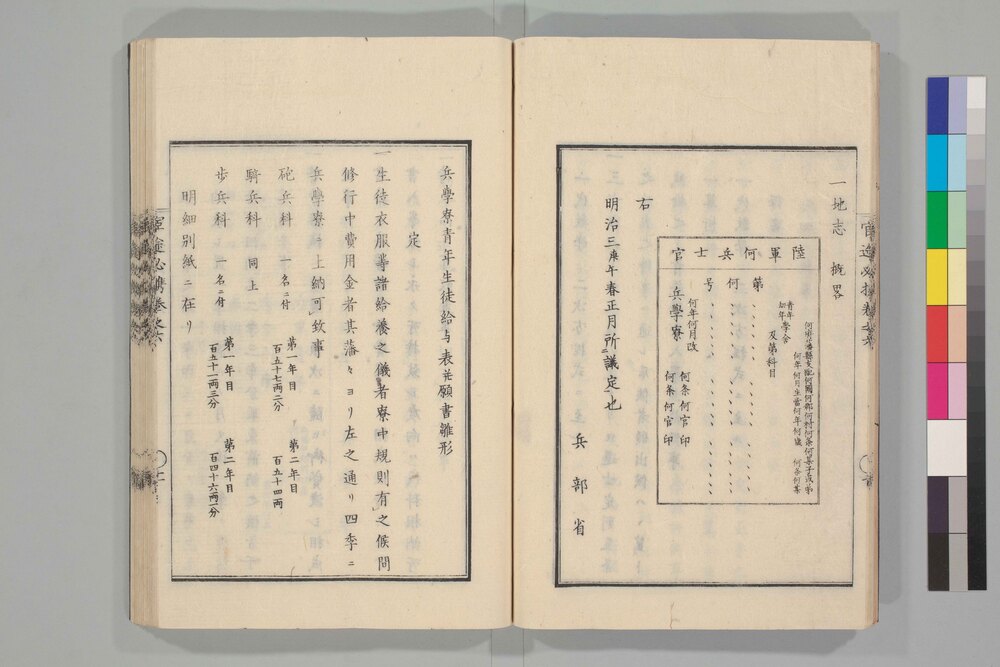 一地志 概略
陸軍何兵士官
何府藩縣支配何國何郡何村何某子或弟
何年何月生當何年何歳 何各何某
青年
幼年
學舎
及第科目
第
何
号
何年何月改
兵學寮
何条何官印
何条何官印
右
明治三庚午春正月所議定也
兵部省
兵學寮青年生徒給与表并願書雛形
定
一生徒衣服等諸給養之儀者寮中規則有之候間
修行中費用金者其藩々ヨリ左之通リ四季ニ
兵學寮ヘ上納可致事
砲兵科 一名ニ付 第一年目 百五十七両二分 第二年目 百五十四両
騎兵科 同上
歩兵科 一名ニ付 第一年目 百五十一両三分 第二年目 百四十六両一分
明細別紙ニ在リ